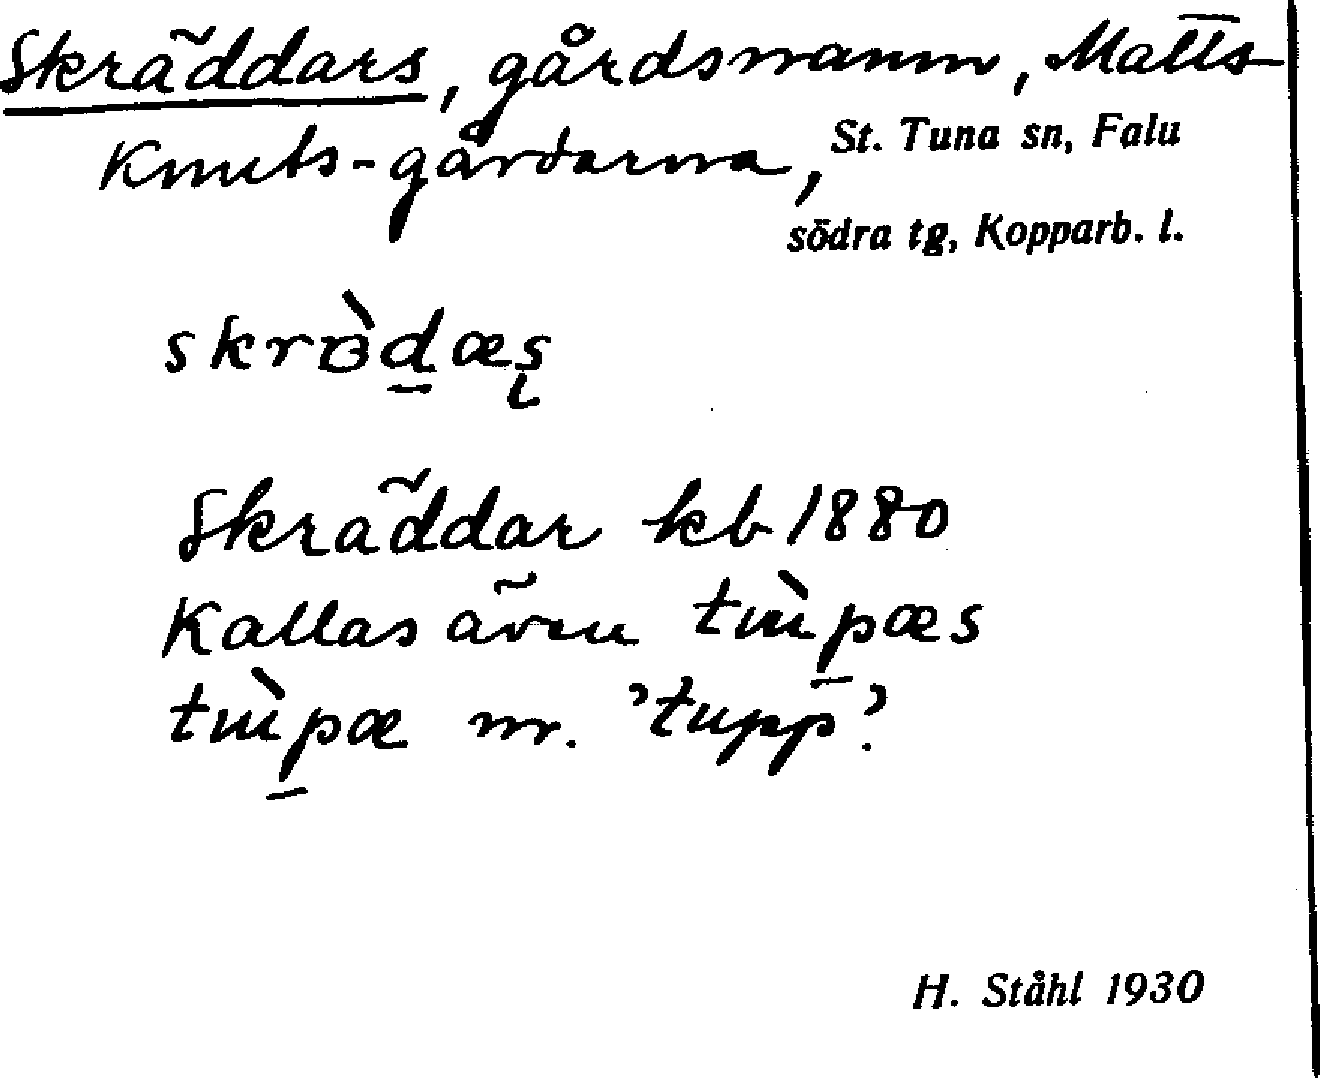 Skräddars, gårdsnamn, Matts
Knuts-gårdarna, St. Tuna sn, Falu
södra tg, Kopparb. l.
Skräddar kb 1880
Kallas även
m. 'tupp'?
H. Ståhl 1930